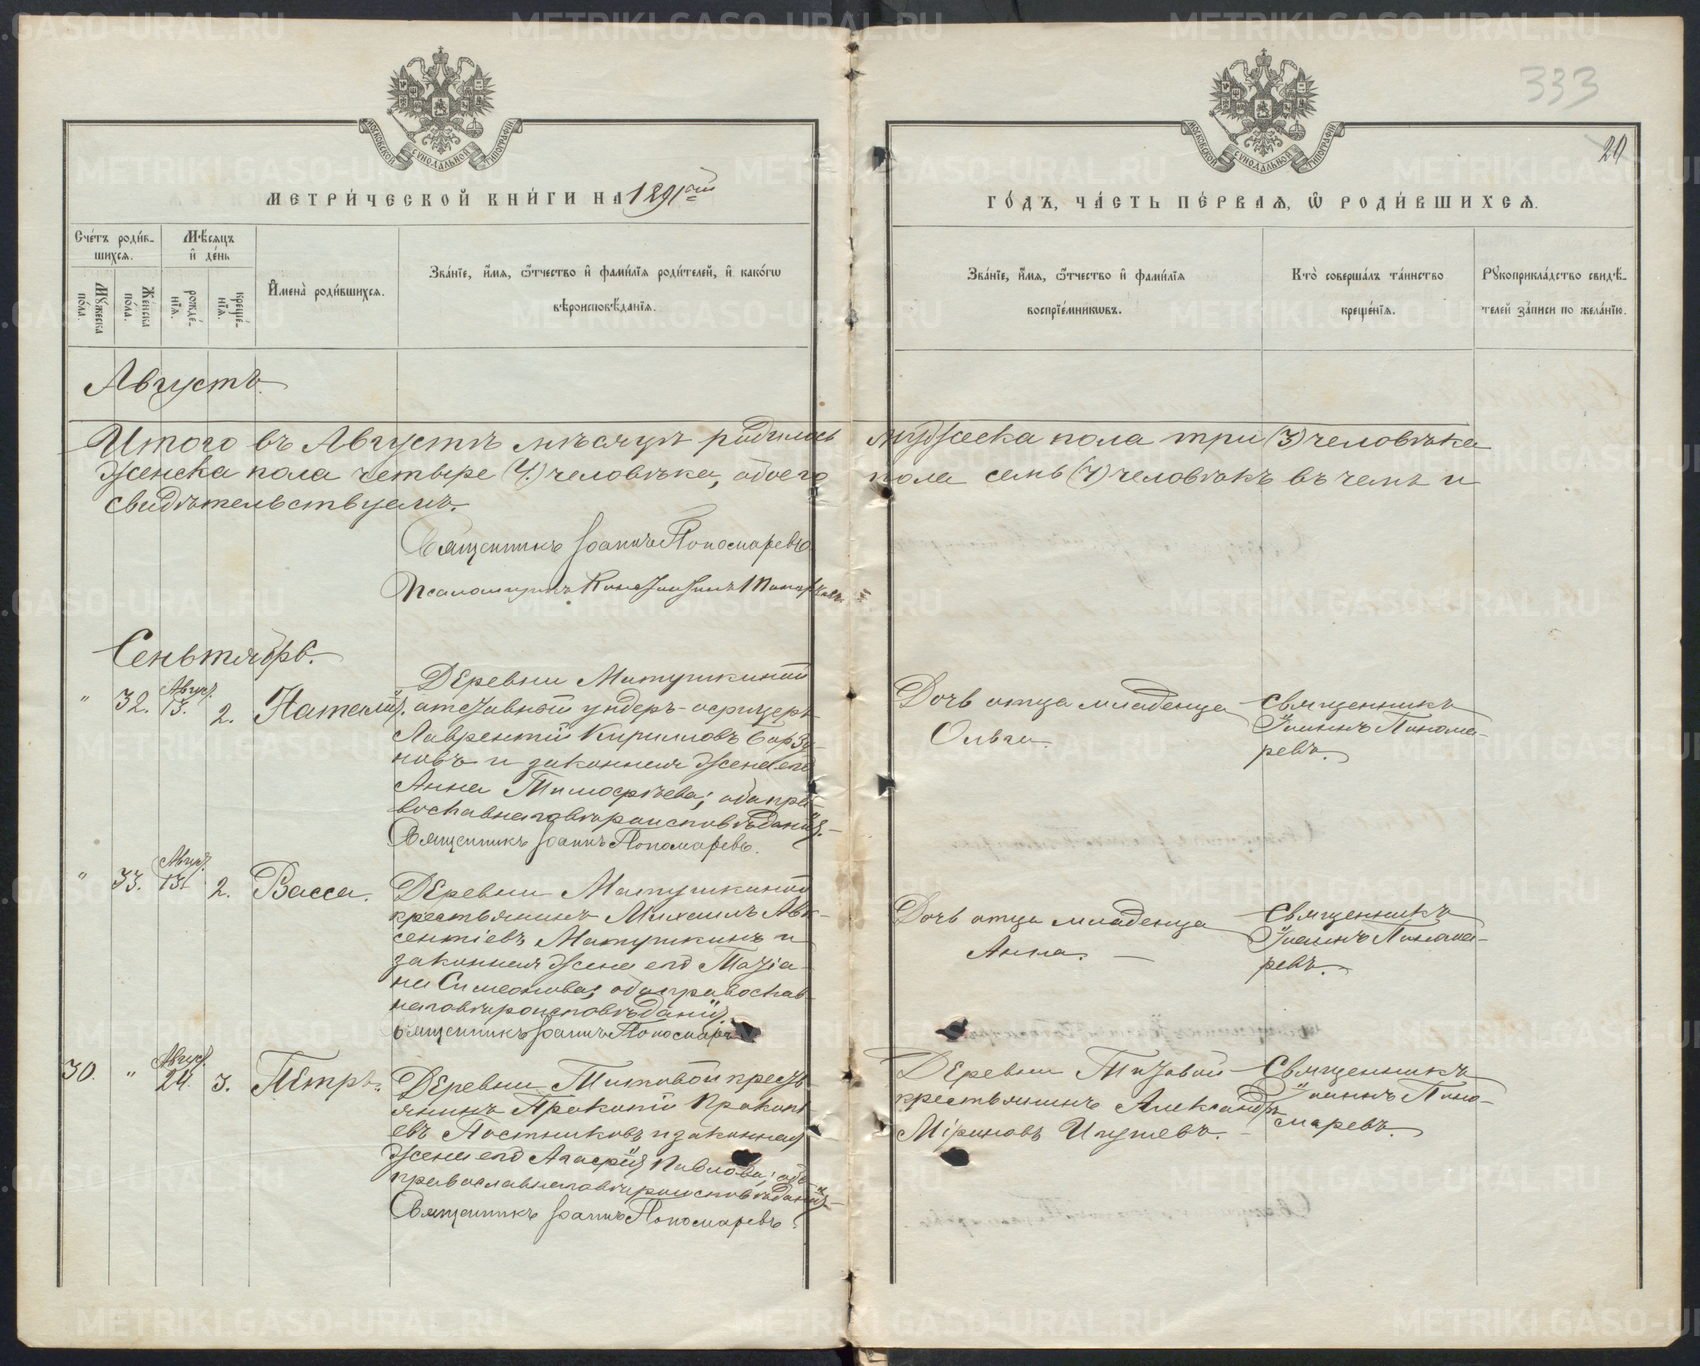 333
20
МЕТРИ́ЧЕСКОЙ КНИ́ГИ НА 1891ый
ГО́ДЪ, ЧА́СТЬ ПЕ́РВАѦ, Ѽ РОДИ́ВШИХСѦ.
Сче́тъ роди́в-
шихсѧ.
Мѣ́сѧцъ
и҆ де́нь
Мꙋ́жеска
по́ла.
Же́нска
по́ла.
рожде́-
нїѧ.
креще́-
нїѧ.
И҆мена̀ роди́вшихсѧ.
Зва́нїе, и҆́мѧ, ѻ҆́тчество и҆ фами́лїѧ роди́телей, и҆ како́гѡ
вѣроисповѣ́данїѧ.
Зва́нїе, и҆́мѧ, ѻ҆́тчество и҆ фами́лїѧ
воспрїе́мникѡвъ.
Кто̀ соверша́лъ та́инство
креще́нїѧ.
Рꙋкоприкла́дство свидѣ́-
телей за́писи по жела́нїю.
Августъ.
Итого въ Августѣ мѣсяцѣ родилось мужеска пола три (3) человѣка
женска пола четыре (4) человѣка, обоего пола семь (7) человѣкъ въ чемъ и
свидѣтельствуемъ.
Священникъ Іоаннъ Пономаревъ
Псаломщикъ Константинъ
Сеньтябрь.
" 32. Август. 13. 2. Наталія.
Деревни Матушкиной
отставной ундеръ-офицеръ
Лаврентій Кирилловъ Барза-
новъ и законная жена его
Анна Тимофѣева; оба пра-
вославнаго вѣроисповѣданія.
Священникъ Іоаннъ Пономаревъ.
Дочь отца младенца
Ольга.
Священникъ
Іоаннъ Понома-
ревъ.
" 33. Август. 131 2. Васса.
Деревни Матушкиной
крестьянинъ Михаилъ Авк-
сентіевъ Матушкинъ и
законная жена его Татіа-
на Симеонова; оба православ-
наго вѣроисповѣданія.
Священникъ Іоаннъ Пономаревъ
Дочь отца младенца
Анна.
Священникъ
Іоаннъ Понома-
ревъ.
30. " Август. 24 3. Петръ.
Деревни Титовой кресть-
янинъ Прокопій Прокопі-
евъ Постниковъ и законная
жена его Агафія Павлова; оба
православнаго вѣроисповѣданія
Священникъ Іоаннъ Пономаревъ.
Деревни Титовой
крестьянинъ Александръ
Мироновъ
Священникъ
Іоаннъ Поно-
маревъ.
METRIKI.GASO-URAL.RU